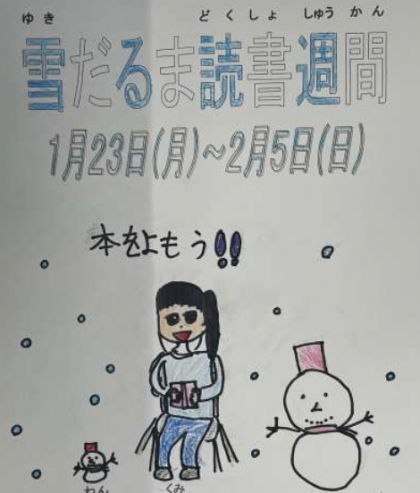 ゆき どくしょ しゅうかん
雪だるま読書週間
1月23日(月)~2月5日(日)
本をよもう!!
くみ